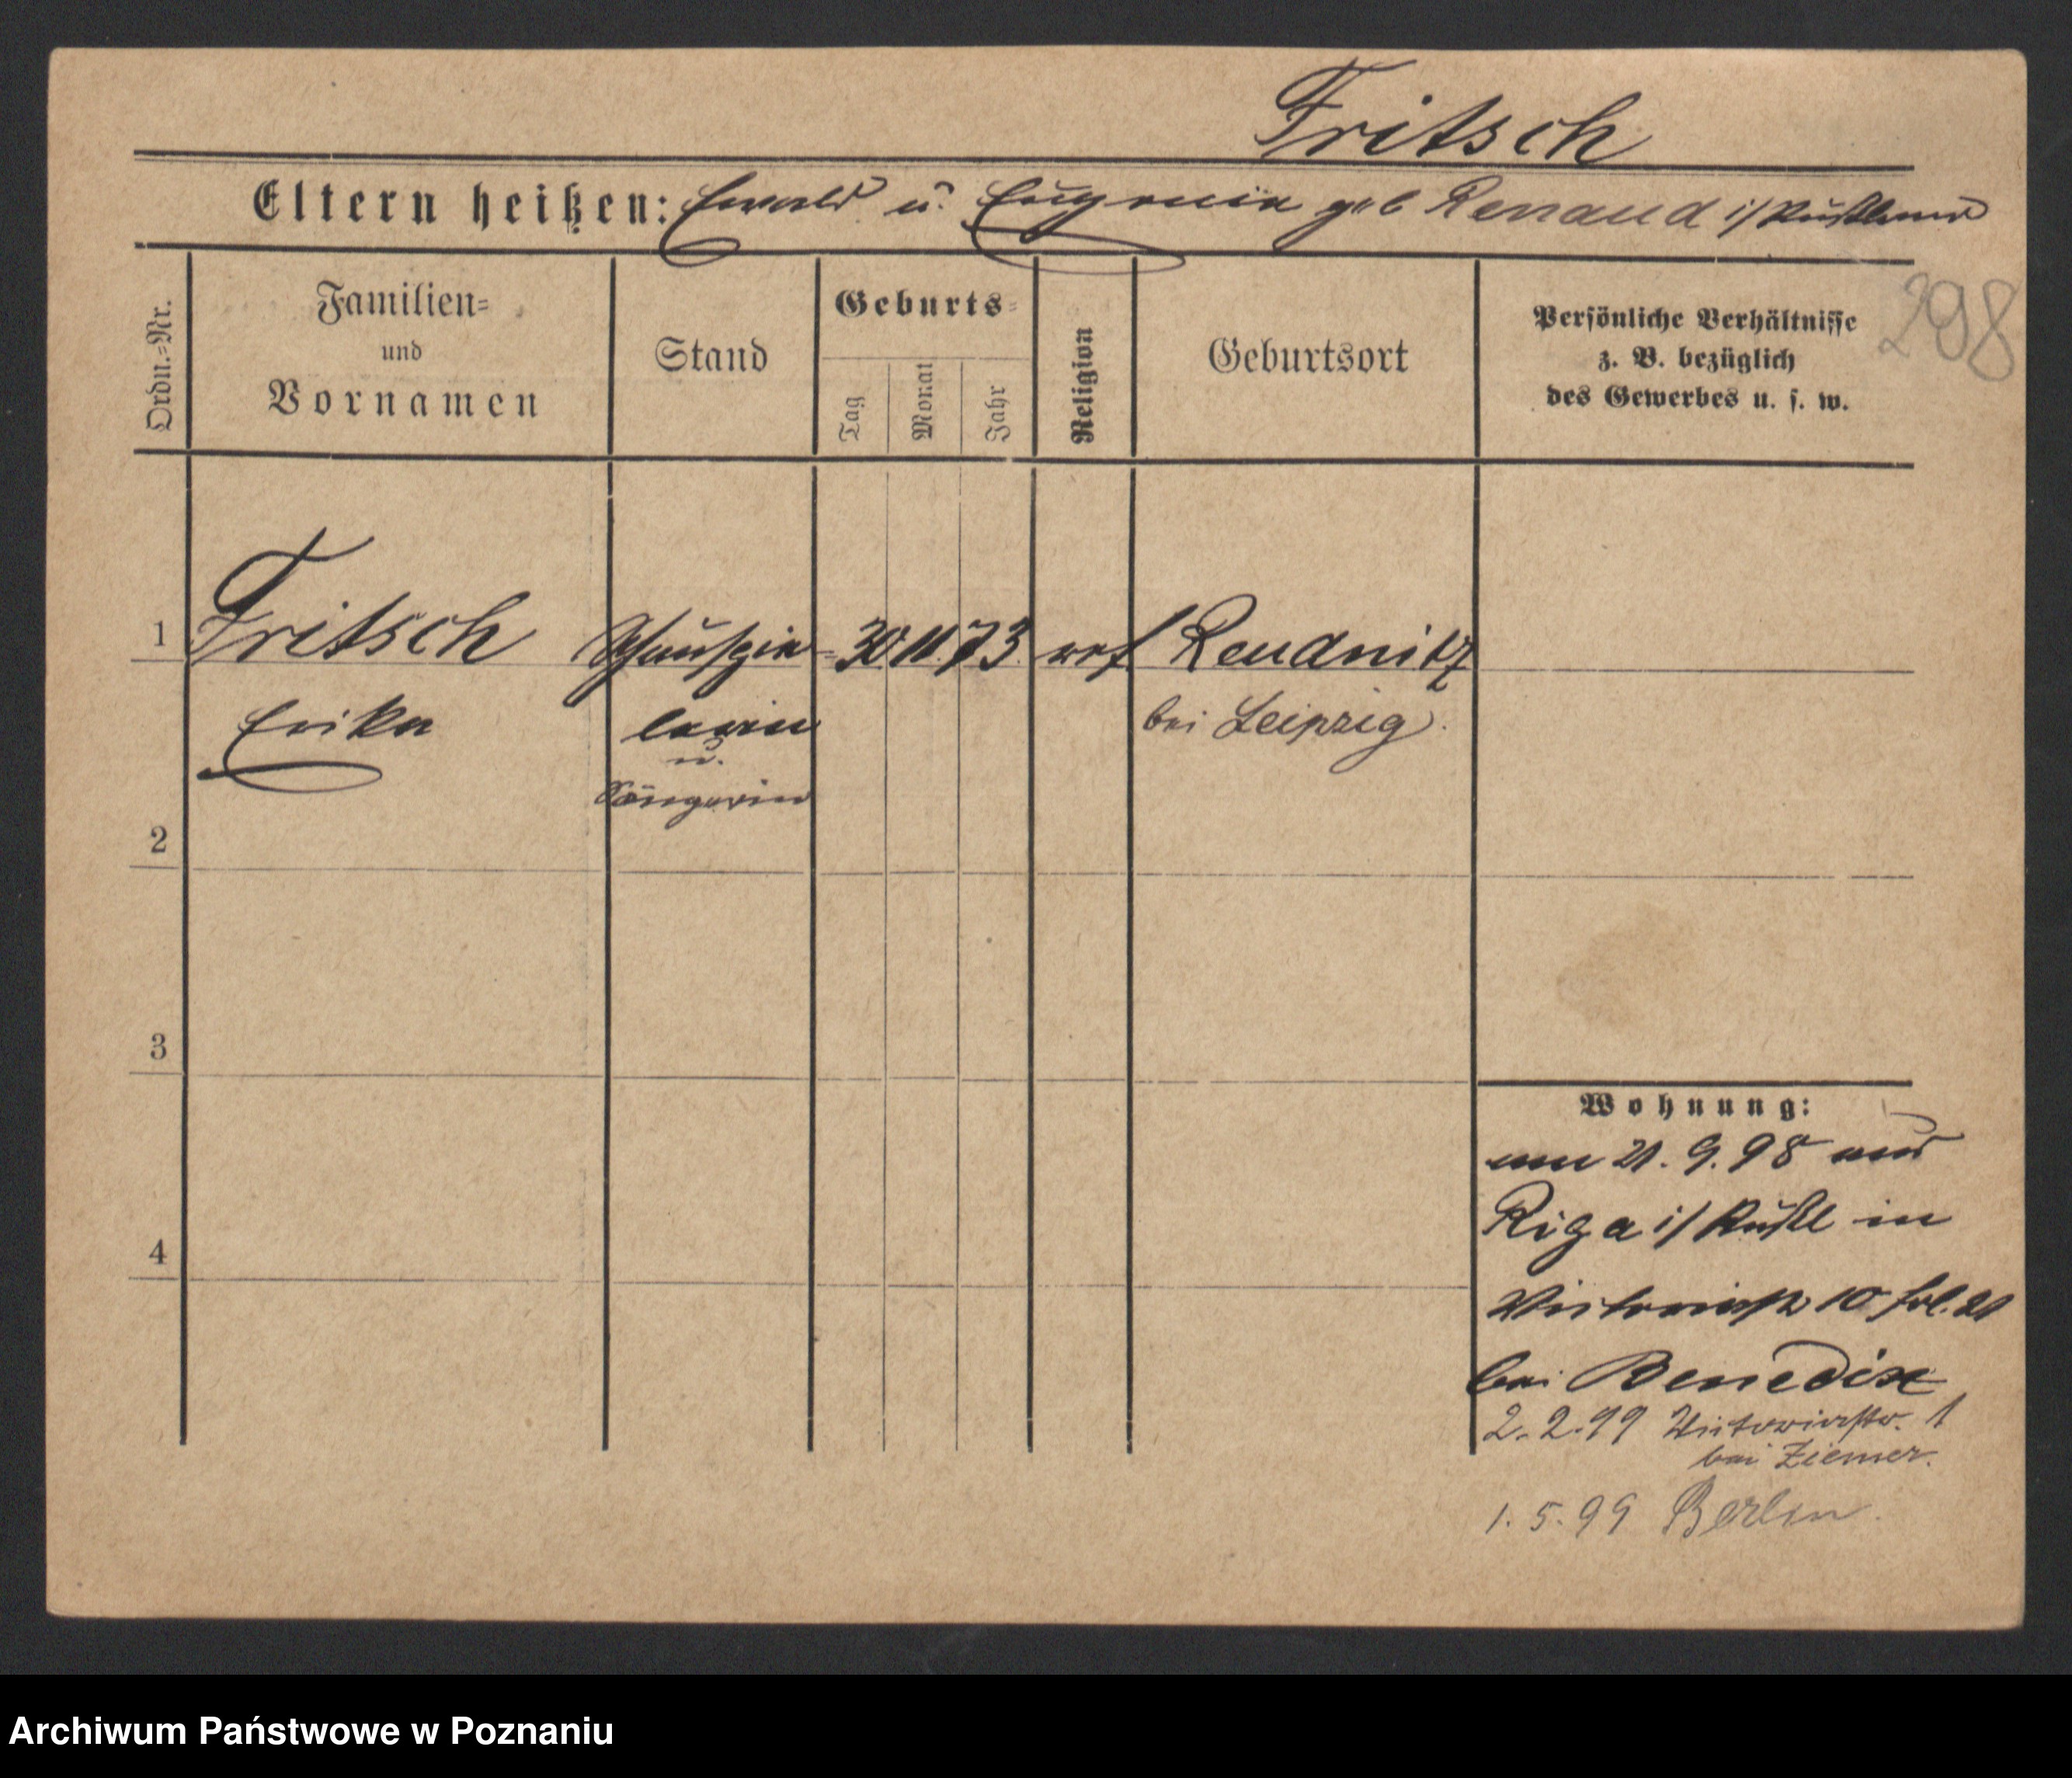 Fritsch
Eltern heißen: Ewald u. Eugenie geb Renaud i/ Rußland
298
Ordn.=Nr.
Familien=
und
Vornamen
Stand
Geburts=
Tag
Monat
Jahr
Religion
Geburtsort
Persönliche Verhältnisse
z. B. bezüglich
des Gewerbes u. s. w.
1 Fritsch Schauspie= 30 11. 73 ref Reudnitz
Erika lerin bei Leipzig.
u.
Sängerin
2
3
4
Wohnung:
21. 9. 98 aus
Riga i/ Rußl in
Victoriastr 10
bei Benedix
2. 2. 99 Victoriastr. 1
bei Ziemer.
1. 5. 99 Berlin.
Archiwum Państwowe w Poznaniu